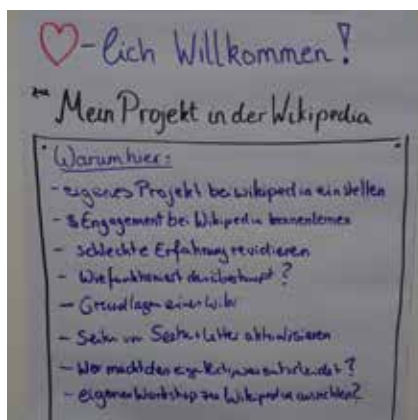 -lich Willkommen!
Mein Projekt in der Wikipedia
Warum hier:
- eigenes Projekt bei wikipedia einstellen
- Engagement bei Wikipedia kennenlernen
- schlechte Erfahrung revidieren
- Wie funktioniert das überhaupt?
- Grundlagen einer Wiki
- Seiten von aktualisieren
- Wer macht den entscheidet?
- eigenen Workshop zu Wikipedia ausrichten?